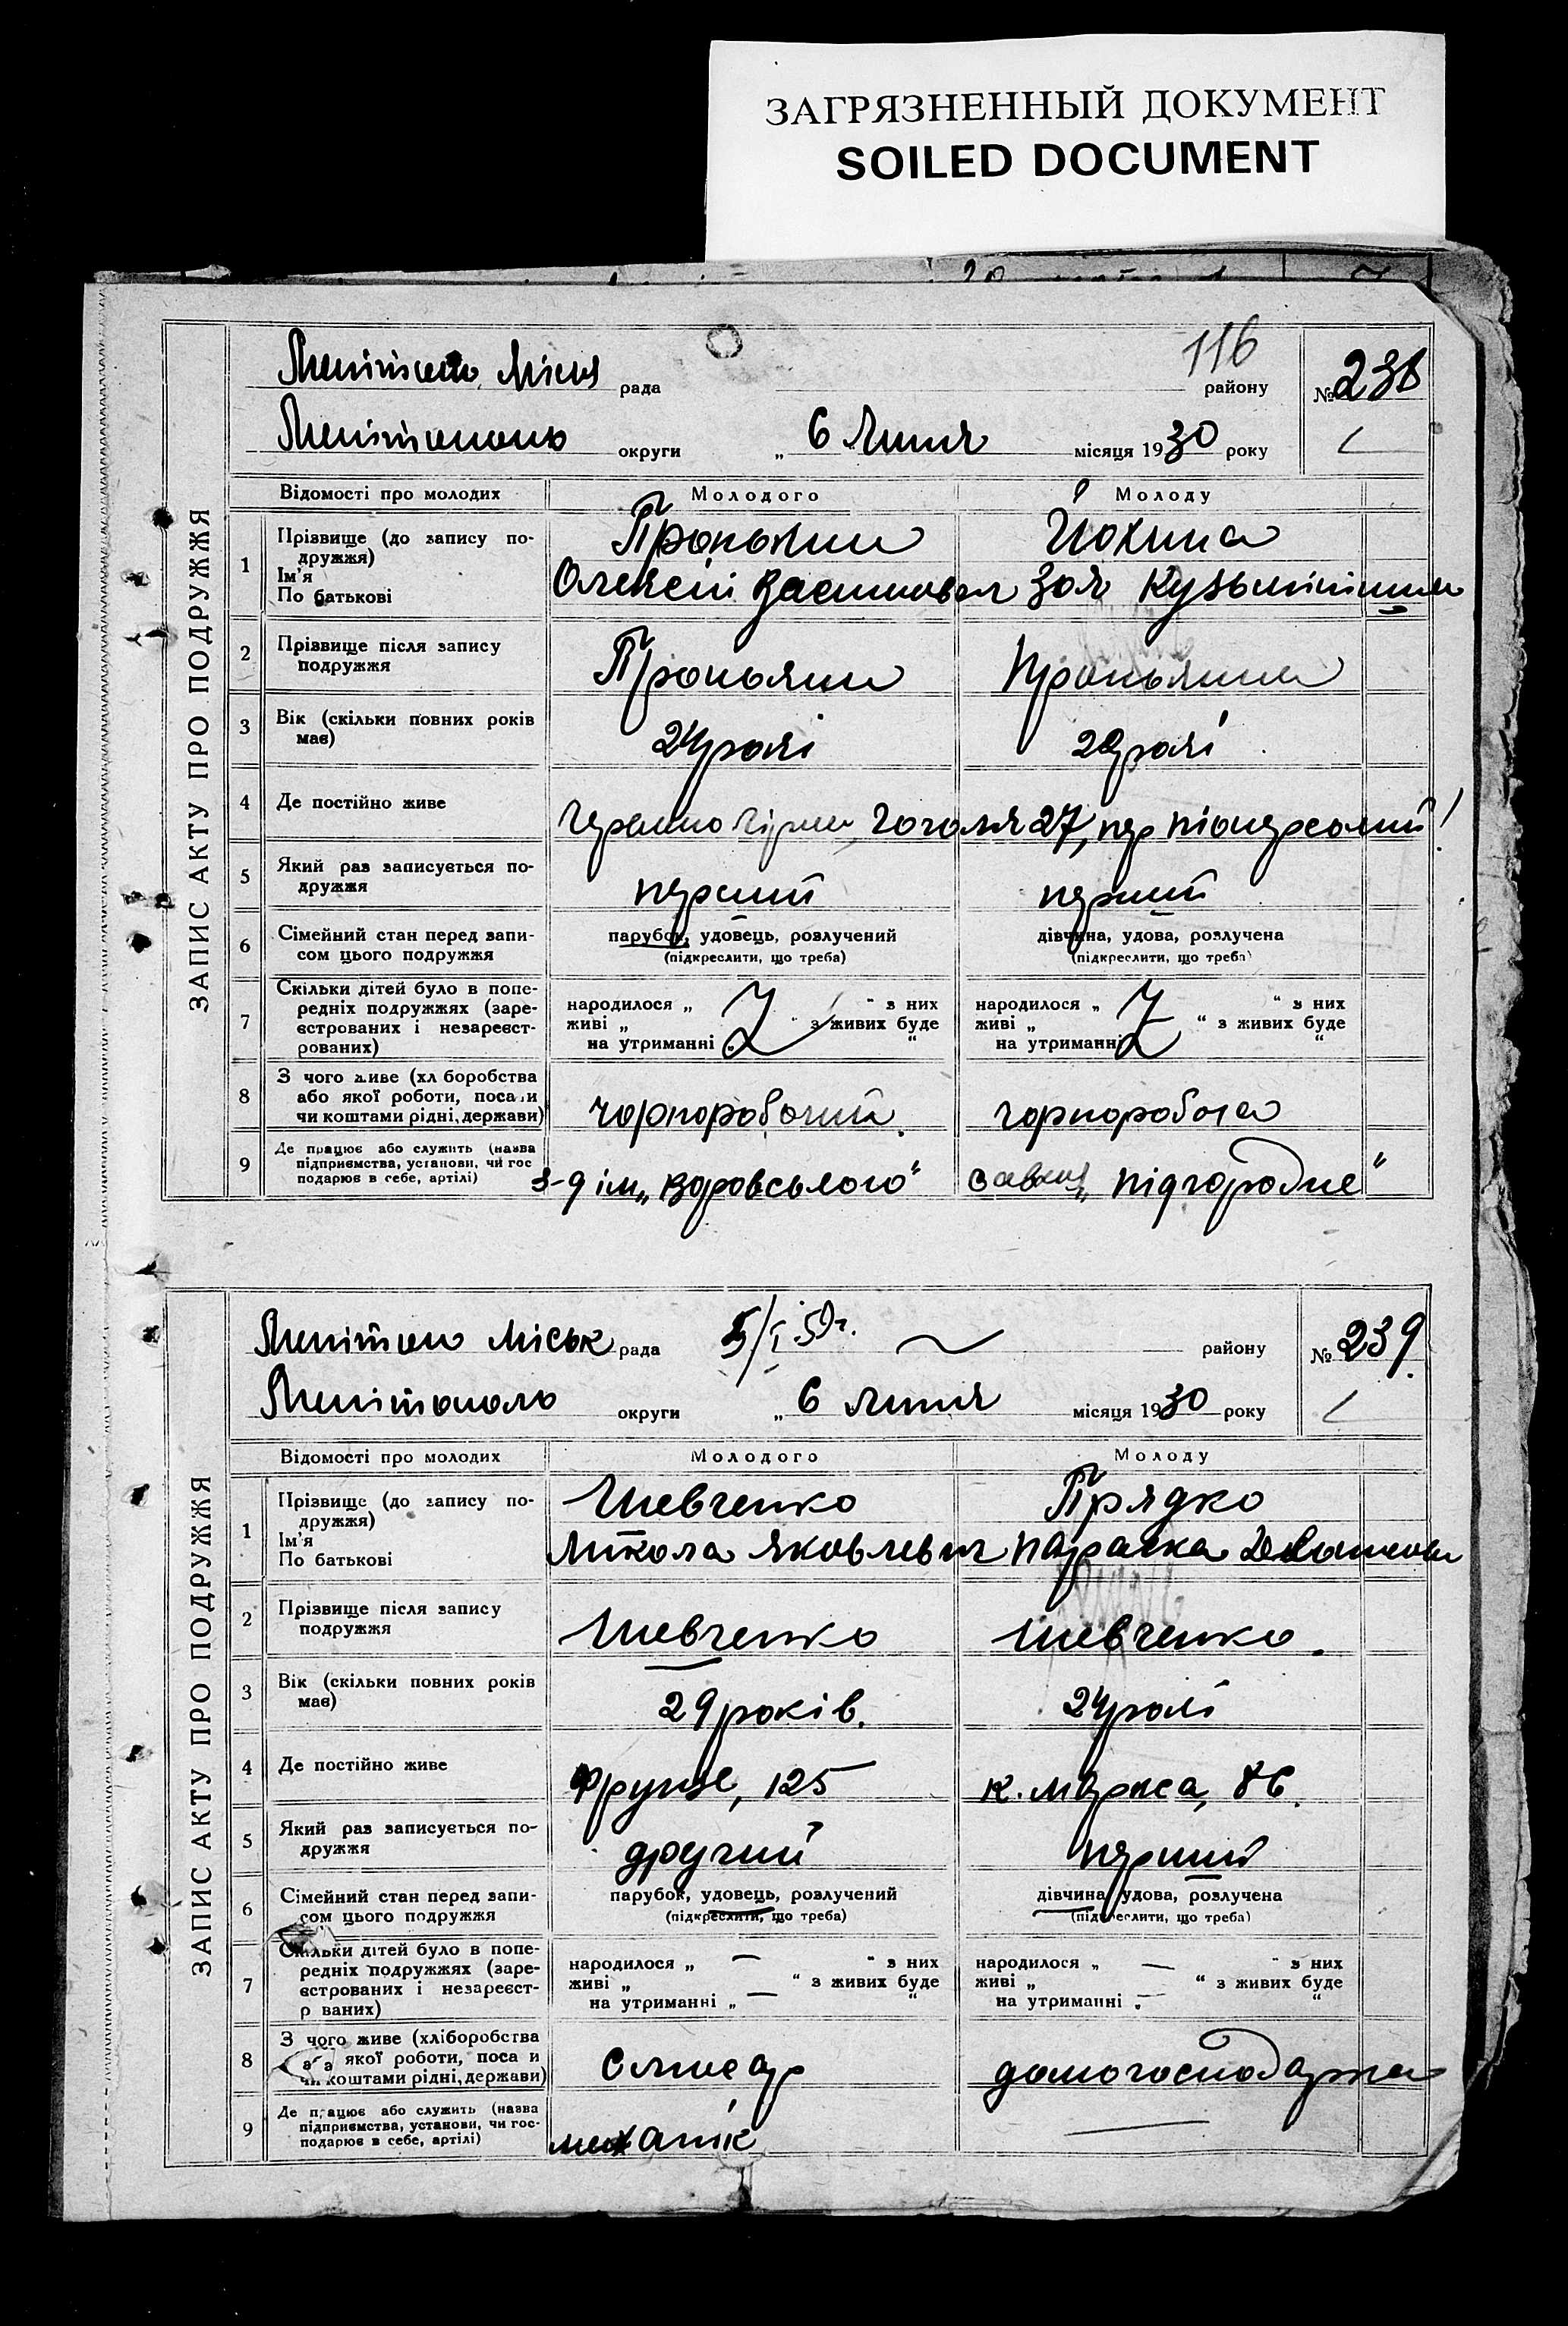 ЗАГРЯЗНЕННЫЙ ДОКУМЕНТ
SOILED DOCUMENT
116
рада району № 238
округи „ 6 Липня місяця 1930 року
ЗАПИС АКТУ ПРО ПОДРУЖЖЯ
Відомості про молодих Молодого Молоду
1 Прізвище (до запису подружжя)
Ім'я
По батькові
Йохина
Олексій Зоя
2 Прізвище після запису
подружжя
3 Вік (скільки повних років
має)
24 роки
4 Де постійно живе
Гоголя 27, пер Піонерський
5 Який раз записується по-
дружжя
перший перший
6 Сімейний стан перед запи-
сом цього подружжя
парубок, удовець, розлучений дівчина, удова, розлучена
(підкреслити, що треба) (підкреслити, що треба)
7 Скільки дітей було в попе-
редніх подружжях (заре-
єстрованих і незареєст-
рованих)
народилося „ “ з них народилося „ “ з них
живі „ “ з живих буде живі „ “ з живих буде
на утриманні „ “ на утриманні „ “
8 З чого живе (хл боробства
або якої роботи, посади
чи коштами рідні, держави)
чорноробочий чорнороботa
9 Де працює або служить (назва
підприємства, установи, чи гос
подарює в себе, артілі)
з-д ім „Воровського“ „Підгородне“
Міськ рада 5/I 59г. району № 239
Мелітополь округи „ 6 липня місяця 1930 року
ЗАПИС АКТУ ПРО ПОДРУЖЖЯ
Відомості про молодих Молодого Молоду
1 Прізвище (до запису по-
дружжя)
Ім'я
По батькові
Шевченко Прядко
Микола Яковлевич Параска
2 Прізвище після запису
подружжя
Шевченко Шевченко.
3 Вік (скільки повних років
має)
29 років. 24 роки
4 Де постійно живе
Фрунзе, 125 К. Маркса, 86.
5 Який раз записується по-
дружжя
другий перший
6 Сімейний стан перед запи-
сом цього подружжя
парубок, удовець, розлучений дівчина, удова, розлучена
(підкреслити, що треба) (підкреслити, що треба)
7 Скільки дітей було в попе-
редніх подружжях (заре-
єстрованих і незареєст-
р ваних)
народилося „ — “ з них народилося „ — “ з них
живі „ “ з живих буде живі „ “ з живих буде
на утриманні „ — “ на утриманні „ — “
8 З чого живе (хліборобства
якої роботи, поса и
чи коштами рідні, держави)
Слюсар домогосподарка
9 Де працює або служить (назва
підприємства, установи, чи гос-
подарює в себе, артілі)
механік —